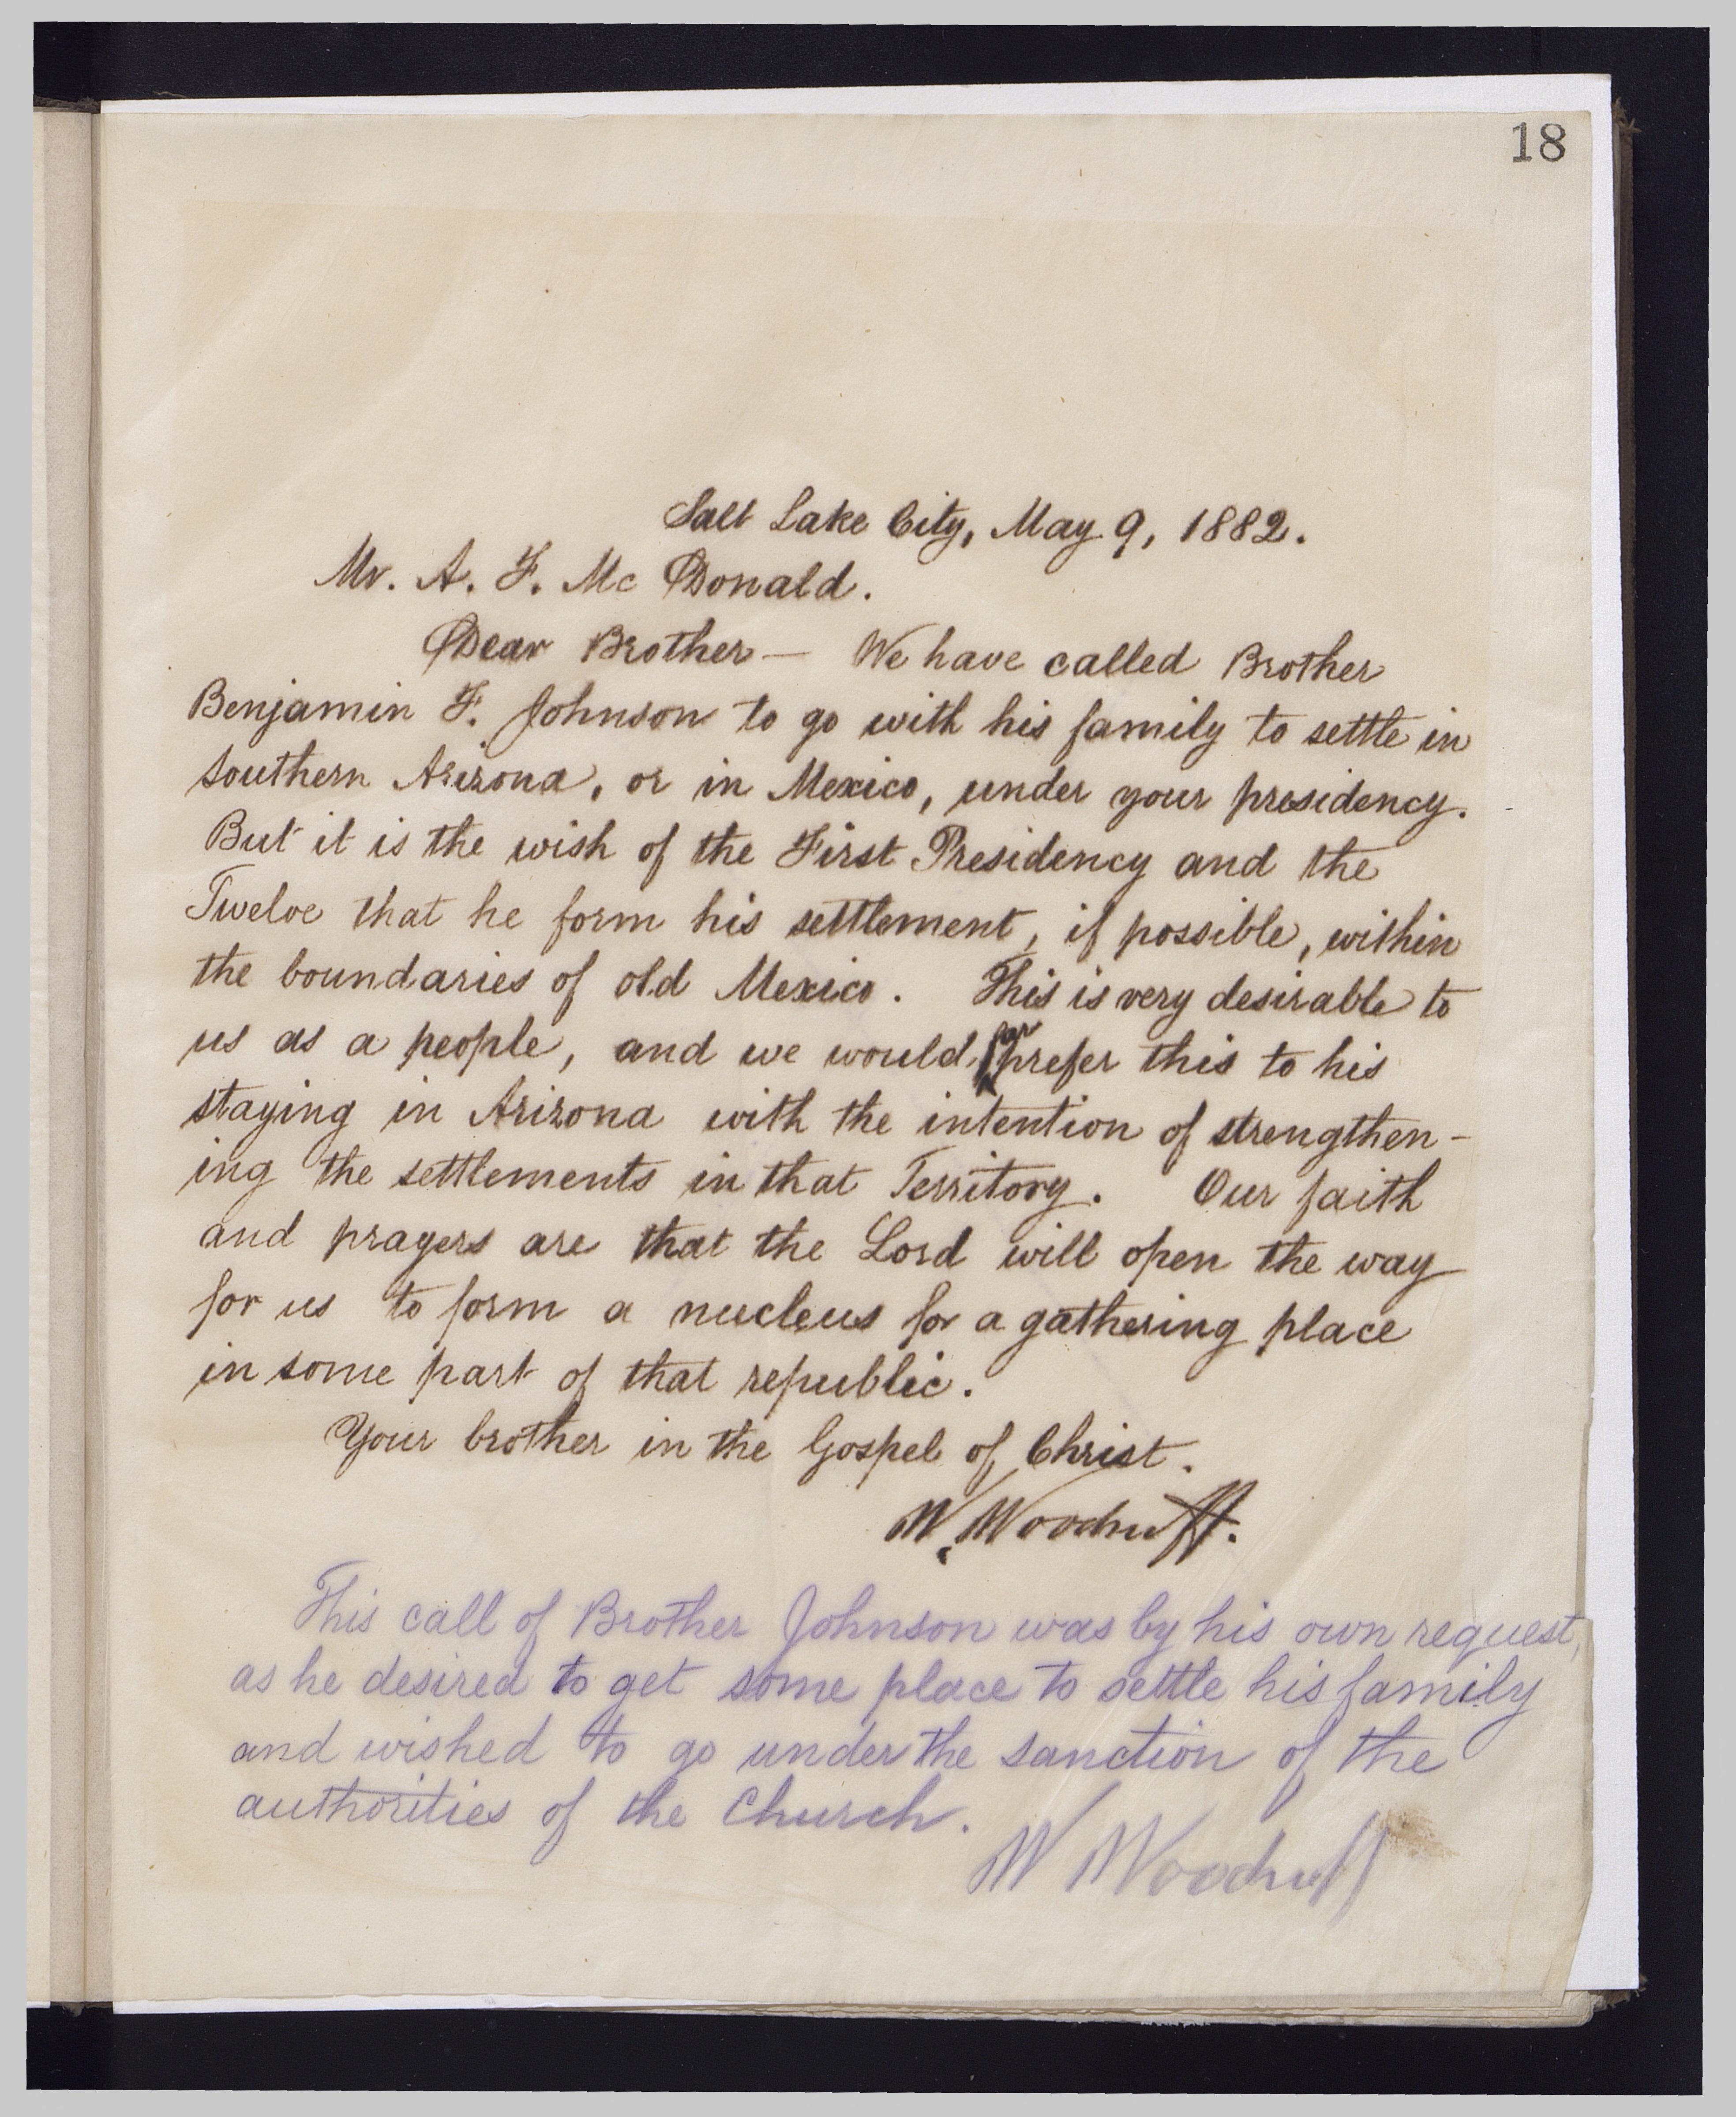 18
Salt Lake City, May 9, 1882.
Mr. A. F. Mc Donald.
Dear Brother — We have called Brother
Benjamin F. Johnson to go with his family to settle in
southern Arizona, or in Mexico, under your presidency.
But it is the wish of the First Presidency and the
Twelve that he form his settlement, if possible, within
the boundaries of old Mexico. This is very desirable to
us as a people, and we would far prefer this to his
staying in Arizona with the intention of strengthen-
ing the settlements in that Territory. Our faith
and prayers are that the Lord will open the way
for us to form a nucleus for a gathering place
in some part of that republic.
Your brother in the Gospel of Christ.
W. Woodruff.
This call of Brother Johnson was by his own request,
as he desired to get some place to settle his family
and wished to go under the sanction of the
authorities of the Church.
W Woodruff